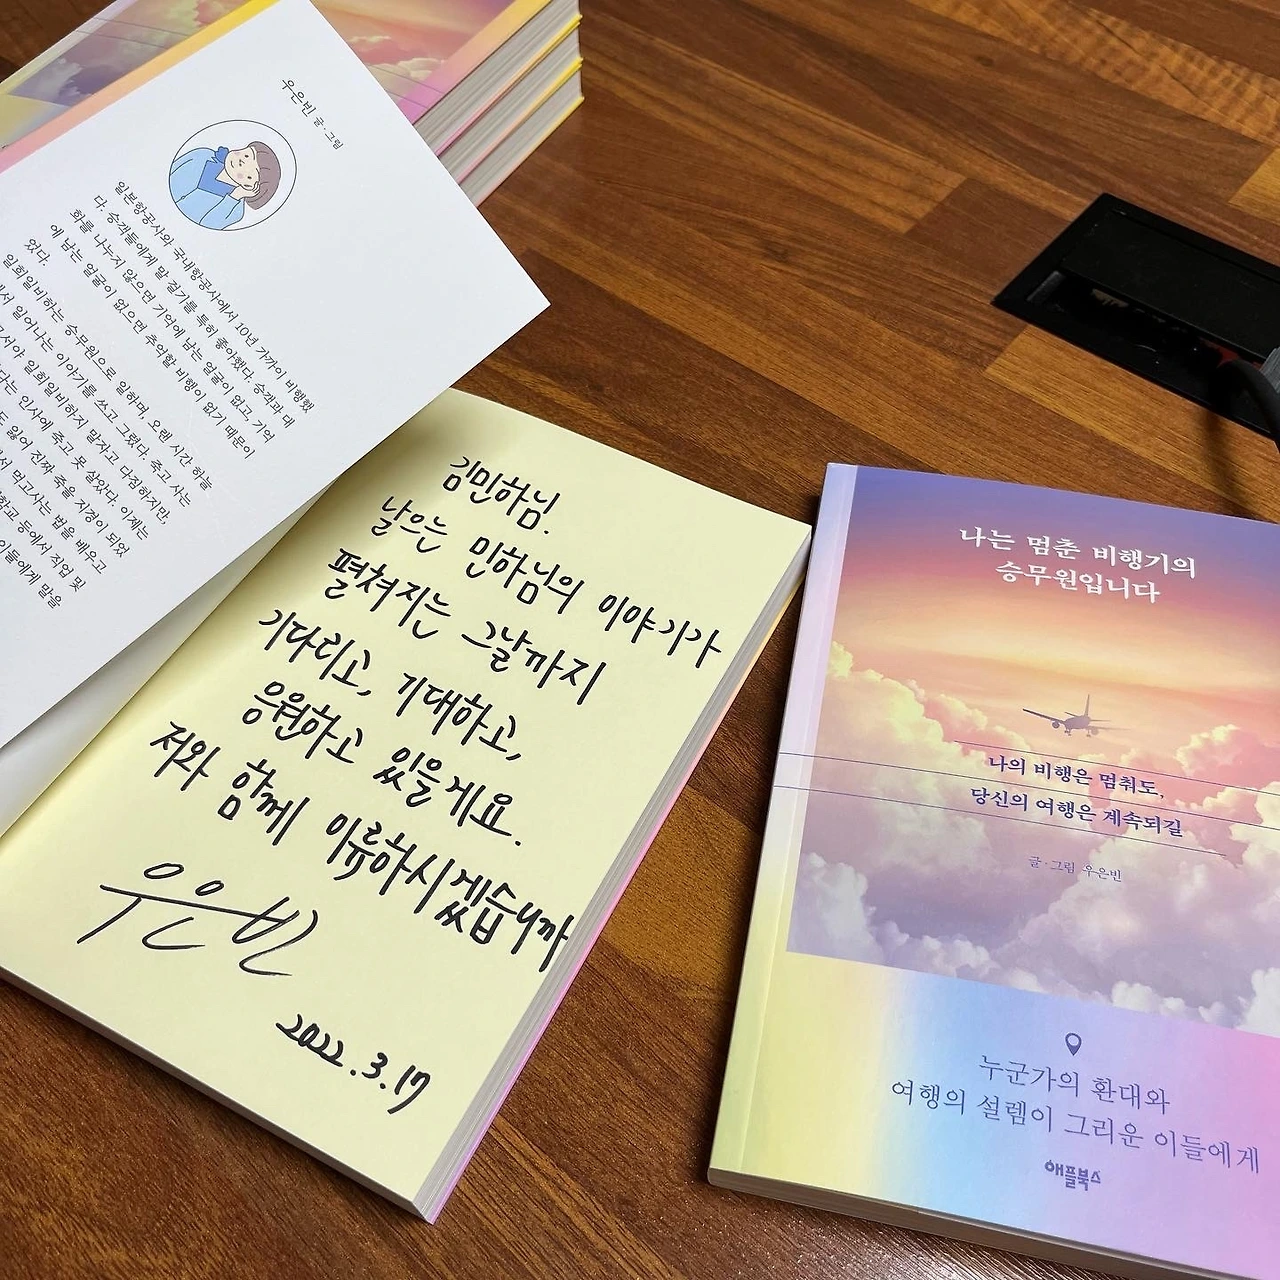 우은빈 글·그림
일본항공사와 국내항공사에서 10년 가까이 비행했
다. 승객들에게 말 걸기를 특히 좋아했다. 승객과 대
화를 나누지 않으면 기억에 남는 얼굴이 없고, 기억
에 남는 얼굴이 없으면 추억할 비행이 없기 때문이
었다.
일희일비하는 승무원으로 일하며, 오랜 시간 하늘
에서 일어나는 이야기를 쓰고 그렸다. 죽고 사는
서야 일희일비하지 말자고 다짐하지만,
다는 인사에 죽고 못 살았다. 이제는
도 잃어 진짜 죽을 지경이 되었
서 먹고사는 법을 배우고
학교 등에서 직업 및
이들에게 말을
김민하님.
날으는 민하님의 이야기가
펼쳐지는 그날까지
기다리고, 기대하고,
응원하고 있을게요.
저와 함께 이륙하시겠습니까
우은빈
2022.3.17
나는 멈춘 비행기의
승무원입니다
나의 비행은 멈춰도,
당신의 여행은 계속되길
글·그림 우은빈
누군가의 환대와
여행의 설렘이 그리운 이들에게
애플북스